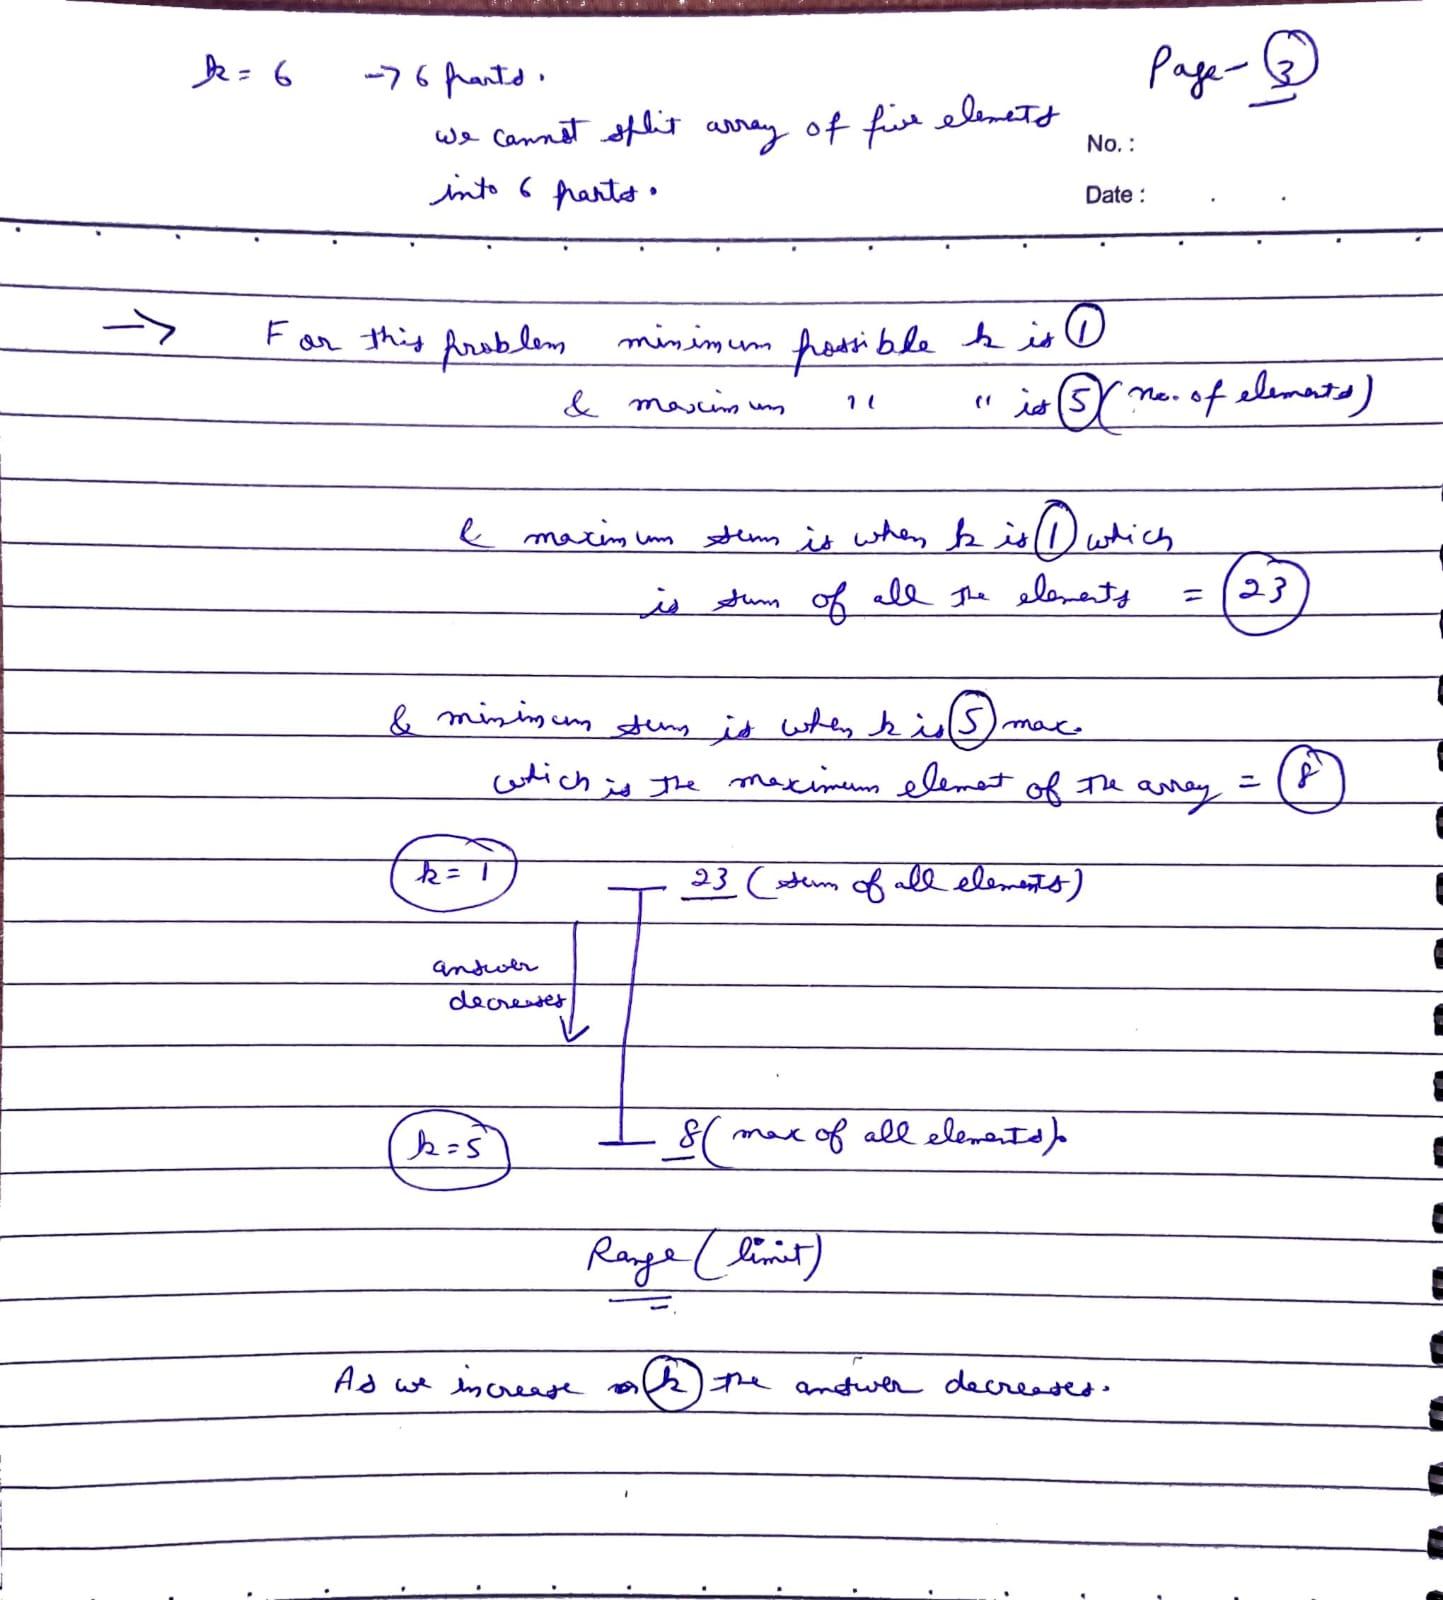 Page-3
k = 6 → 6 parts.
we cannot split array of five elements
into 6 parts.
No. :
Date : . .
→ For this problem minimum possible k is 1
& maximum " " is 5 (no. of elements)
& maximum sum is when k is 1 which
is sum of all the elements = 23
& minimum sum is when k is 5 max.
which is the maximum element of the array = 8
k = 1 23 (sum of all elements)
answer
decreases
k = 5 8 (max of all elements).
Range (limit)
As we increase k the answer decreases.